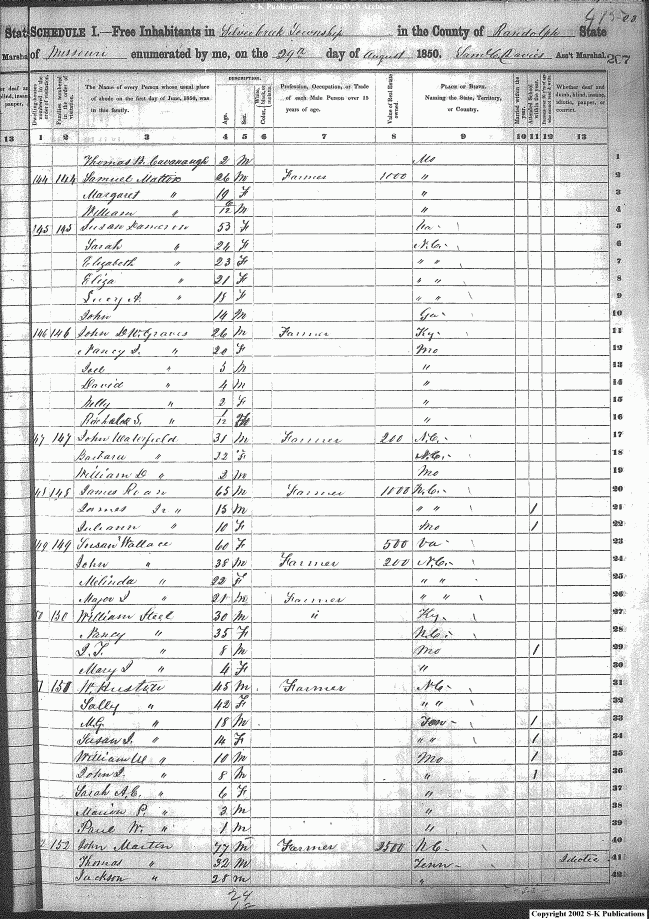 S-K Publications
415 00
SCHEDULE I.—Free Inhabitants in Township in the County of Randolph State
of Missouri enumerated by me, on the 29th day of August 1850. Saml C Davis Ass't Marshal. 207
Stat
Marsha
DESCRIPTION.
Dwelling-houses numbered in the order of visitation.
Families numbered in the order of visitation.
The Name of every Person whose usual place of abode on the first day of June, 1850, was in this family.
Age.
Sex.
Color, White, black, or mulatto.
Profession, Occupation, or Trade of each Male Person over 15 years of age.
Value of Real Estate owned.
PLACE OF BIRTH. Naming the State, Territory, or Country.
Married within the year.
Attended School within the year.
Whether deaf and dumb, blind, insane, idiotic, pauper, or convict.
13 1 2 3 4 5 6 7 8 9 10 11 12 13
Thomas B. Cavanaugh 2 M Mo 1
144 144 Samuel Mattox 26 M Farmer 1000 " 2
Margaret " 19 F " 3
William " 6/12 M " 4
145 145 Susan Dameron 53 F 5
Sarah " 24 F N.C. 6
Elizabeth " 23 F " " 7
Eliza " 21 F " " 8
Lucy A. " 18 F " " 9
John 14 M Ga 10
146 146 John D. W. Graves 26 M Farmer Ky 11
Nancy J. " 20 F Mo 12
Joel " 5 M " 13
David " 4 M " 14
" 2 F " 15
S. " 1/12 " 16
47 147 John Waterfield 31 M Farmer 200 N.C. 17
" 22 F N.C. 18
William D " 2 M Mo 19
48 148 James 65 M Farmer 1000 N.C. 20
James Jr " 15 M " " 1 21
Juliann " 10 F Mo 1 22
49 149 Susan Wallace 60 F 500 Va 23
John " 38 M Farmer 200 N.C. 24
Melinda " 22 F " " 25
Major J " 21 M Farmer " " 26
50 150 William Steel 30 M " Ky 27
Nancy " 35 F N.C. 28
J. F. " 8 M Mo 1 29
Mary J " 4 F " 30
1 W. 45 M Farmer N.C. 31
Sally " 42 F " " 32
M.G. " 18 M Ten 1 33
Susan J. " 14 F " " 1 34
William M " 10 M Mo 1 35
John J. " 8 M " 1 36
Sarah A.C. " 6 F " 37
Marion P. " 3 M " 38
Paul W. " 1 M " 39
2 152 John Martin 77 M Farmer 2500 N.C. 40
Thomas " 32 M Tenn Idiotic 41
Jackson " 28 M " 42
24
Copyright 2002 S-K Publications